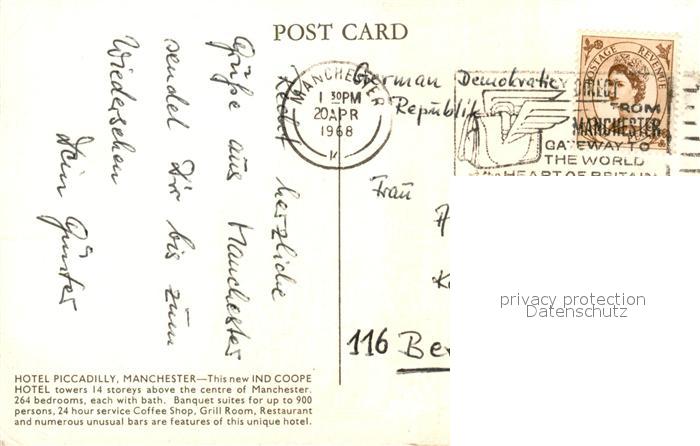 POST CARD
Recht herzliche
Grüße aus Manchester
sendet Dir bis zum
Wiedersehen
Dein Günter
MANCHESTER
1 30PM
20 APR
1968
M
POSTAGE REVENUE
DIRECT
FROM
MANCHESTER
GATEWAY TO
THE WORLD
HEART OF BRITAIN
German Demokratic
Republik
Frau
116 Be
HOTEL PICCADILLY, MANCHESTER—This new IND COOPE
HOTEL towers 14 storeys above the centre of Manchester.
264 bedrooms, each with bath. Banquet suites for up to 900
persons, 24 hour service Coffee Shop, Grill Room, Restaurant
and numerous unusual bars are features of this unique hotel.
privacy protection
Datenschutz